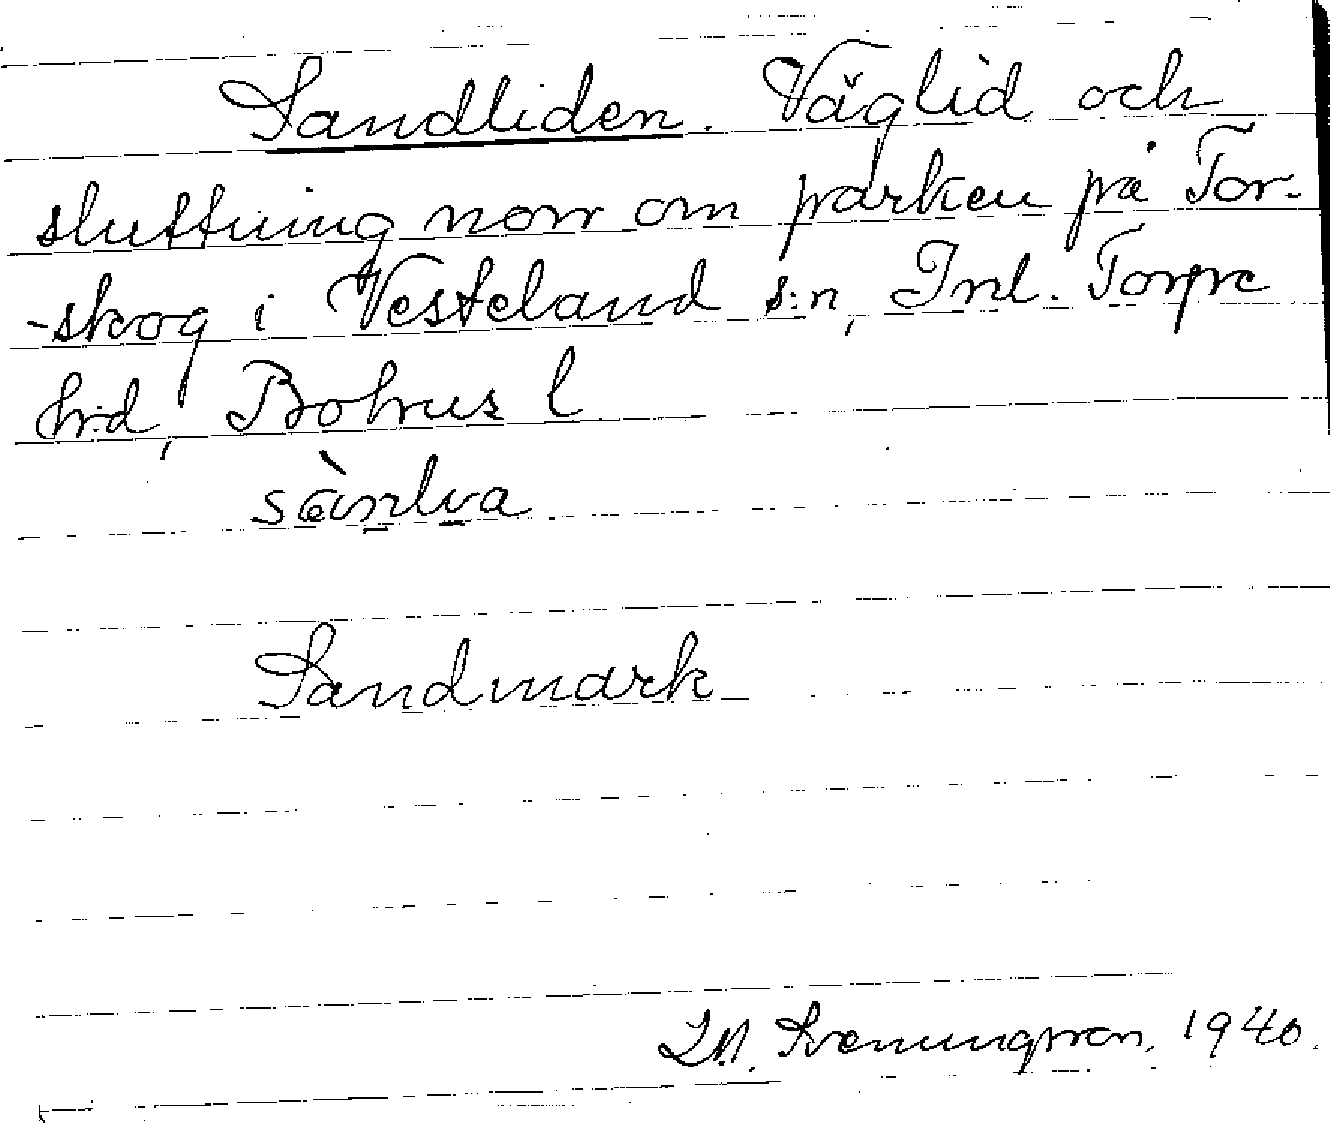 Sandliden. Väglid och
sluttning norr om parken på Tor-
-skog i Vesteland s:n, Inl. Torpe
hrd, Bohus l
Sandmark
Sveningsson, 1940.